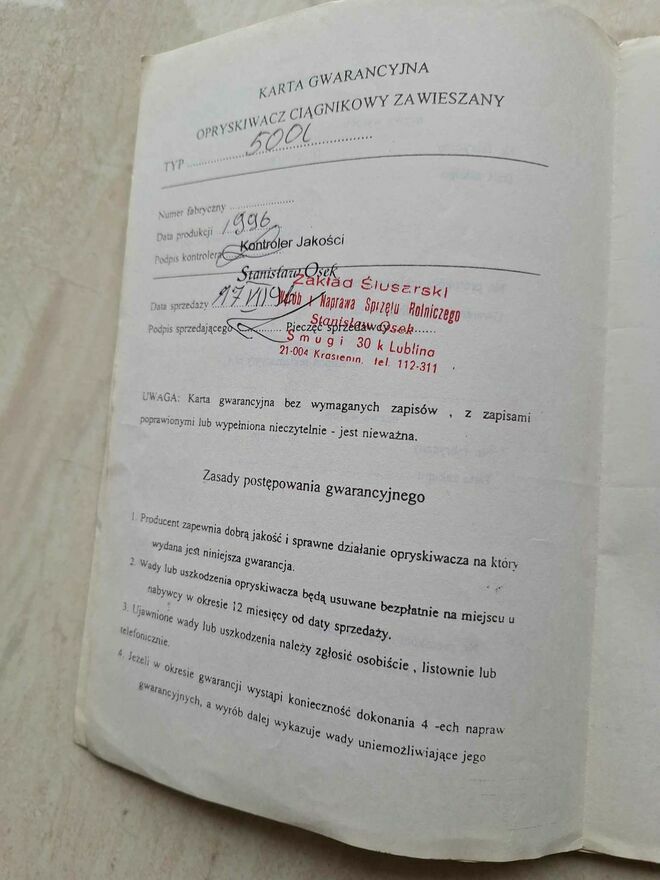 KARTA GWARANCYJNA
OPRYSKIWACZ CIĄGNIKOWY ZAWIESZANY
TYP ........ 500l ........
Numer fabryczny ........
Data produkcji 1996
Podpis kontrolera Kontroler Jakości
Stanisław Osek
Zakład Ślusarski
Data sprzedaży
Wyrób i Naprawa Sprzętu Rolniczego
Podpis sprzedającego ........ Pieczęć sprzedawcy ........
Stanisław Osek
Smugi 30 k Lublina
21-004 Krasienin, tel. 112-311
UWAGA: Karta gwarancyjna bez wymaganych zapisów , z zapisami
poprawionymi lub wypełniona nieczytelnie - jest nieważna.
Zasady postępowania gwarancyjnego
1. Producent zapewnia dobrą jakość i sprawne działanie opryskiwacza na który
wydana jest niniejsza gwarancja.
2. Wady lub uszkodzenia opryskiwacza będą usuwane bezpłatnie na miejscu u
nabywcy w okresie 12 miesięcy od daty sprzedaży.
3. Ujawnione wady lub uszkodzenia należy zgłosić osobiście , listownie lub
telefonicznie.
4. Jeżeli w okresie gwarancji wystąpi konieczność dokonania 4 -ech napraw
gwarancyjnych, a wyrób dalej wykazuje wady uniemożliwiające jego